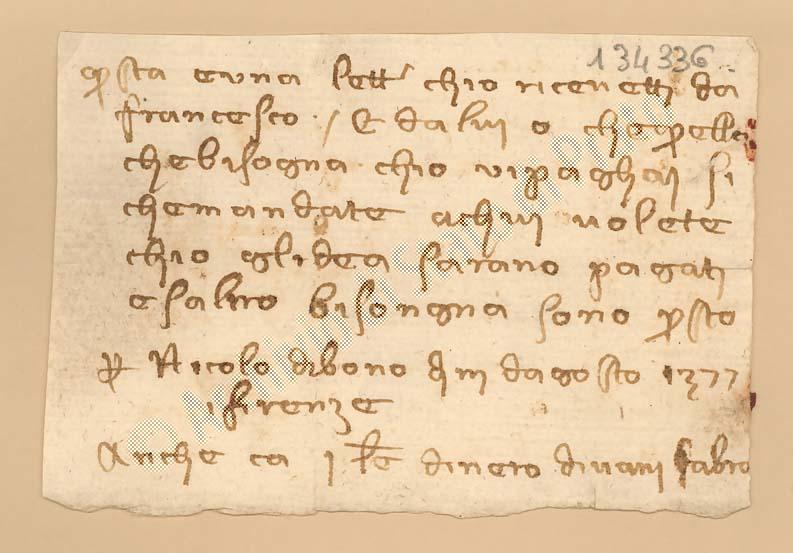 134336
qsta evna lett chio ricevetti da
francesco / E dalui o chepella
chebisogna chio vipaghai si
chemandate achui uolete
chio glidea sarano pagati
esaltro bisongna sono psto
p Nicolo dibono dì iiij dagosto 1377
ifirenze
Anche ca j lre dinero diuani fabro